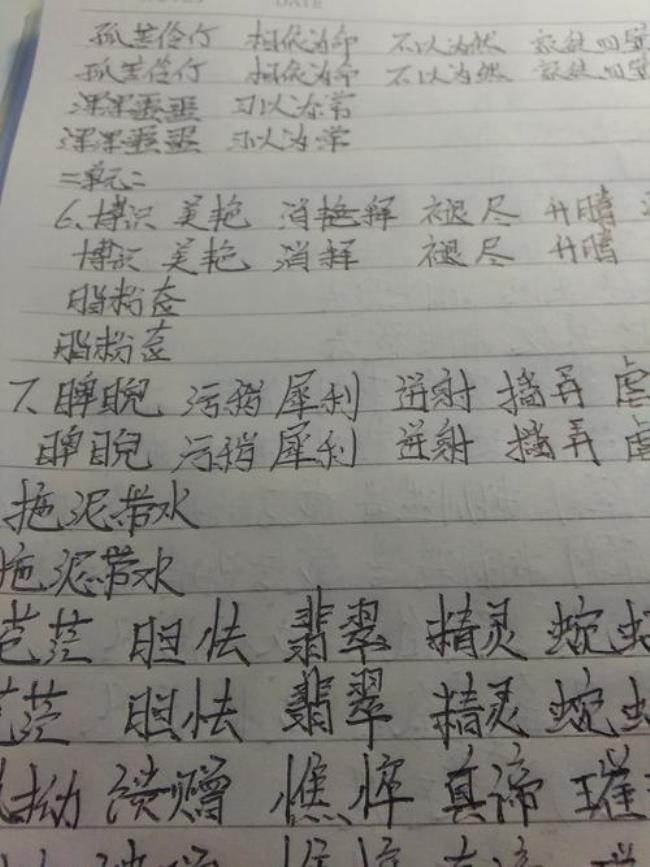 DATE
孤苦伶仃 相依为命 不以为然
孤苦伶仃 相依为命 不以为然
浑浑噩噩 习以为常
浑浑噩噩 习以为常
二单元
6、博识 美艳 消 辉 褪尽 升腾
博识 美艳 消 辉 褪尽 升腾
脂粉态
脂粉态
7、睥睨 污秽 犀利 迸射 搐弄 虐
睥睨 污秽 犀利 迸射 搐弄 虐
拖泥带水
拖泥带水
苍茫 胆怯 翡翠 精灵 蜿蜒
茫 胆怯 翡翠 精灵 蜿
拗 馈赠 憔悴 真谛 璀